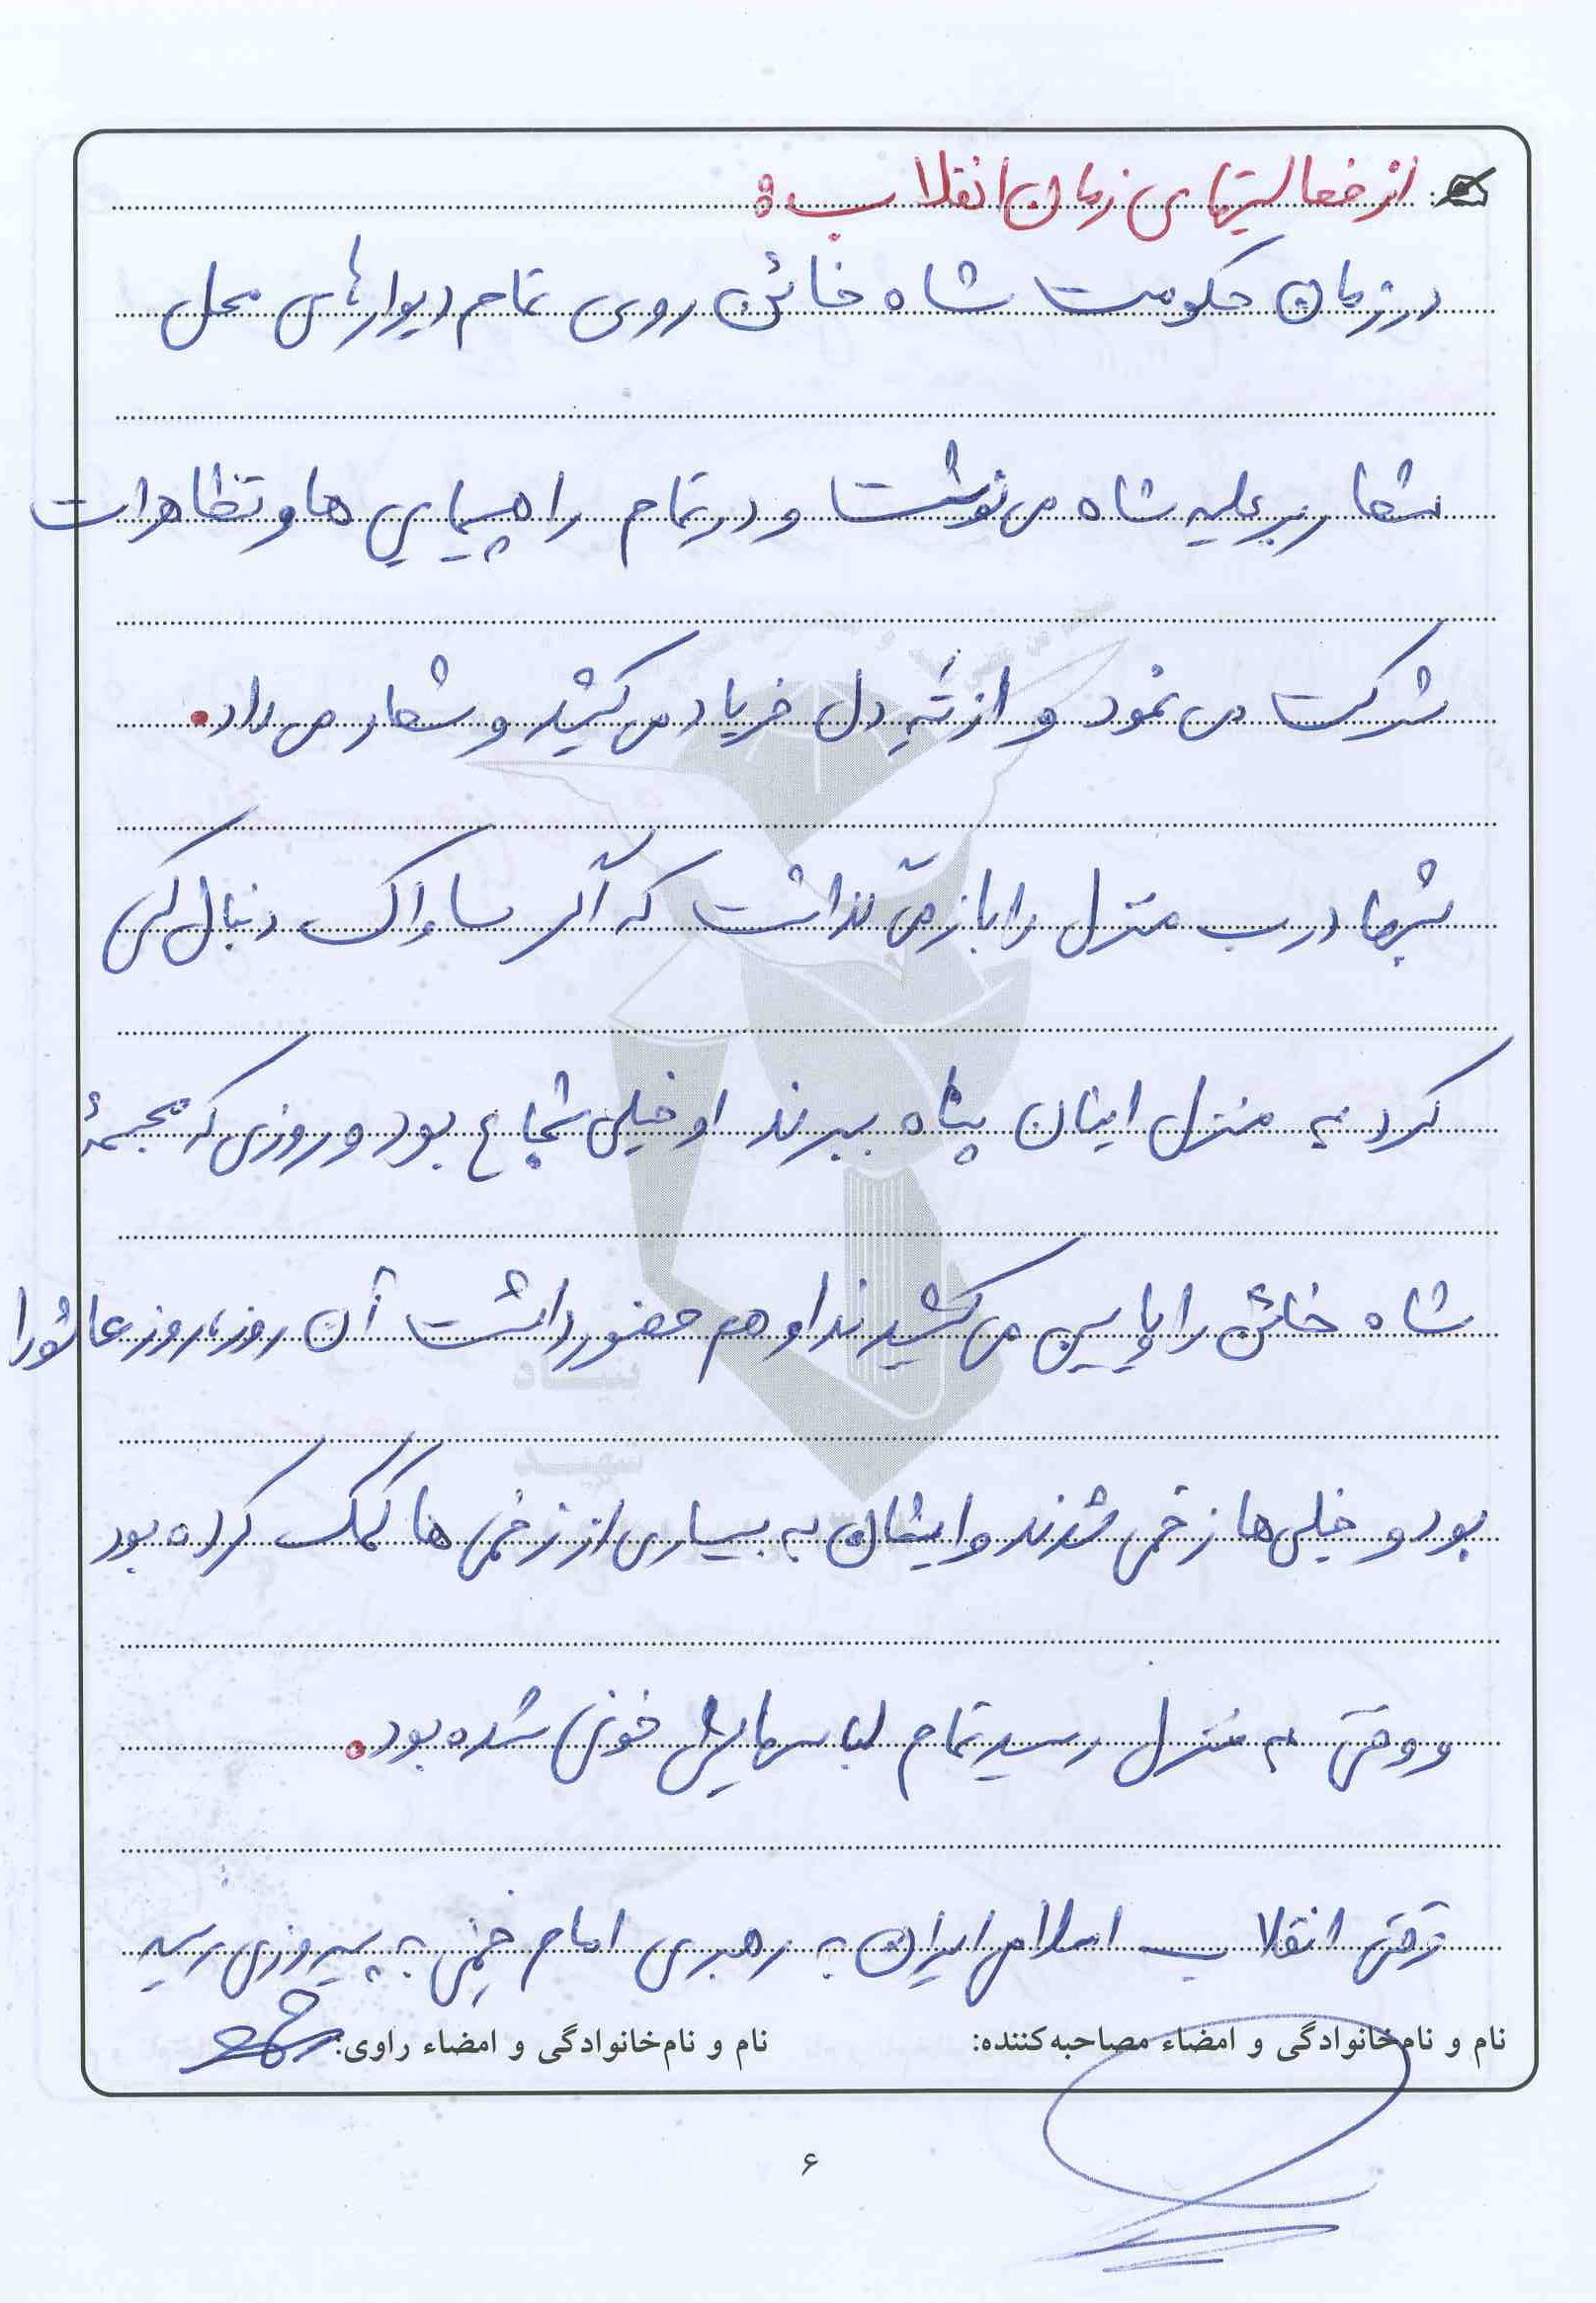 از فعالیتهای زمان انقلاب:
در زمان حکومت شاه خائن روی تمام دیوارهای محل
شعار بر علیه شاه می نوشت و در تمام راهپیمایی ها و تظاهرات
شرکت می نمود و از تهِ دل فریاد می کشید و شعار می داد.
شبها درب منزل را باز می گذاشت که اگر ساواک دنبال کسی
کرد به منزل اینان پناه ببرند او خیلی شجاع بود و روزی که مجسمهٔ
شاه خائن را پایین می کشیدند او هم حضور داشت آن روز، روز عاشورا
بود و خیلی ها زخمی شدند و ایشان به بسیاری از زخمی ها کمک کرده بود
و وقتی به منزل رسید تمام لباسهایش خونی شده بود.
وقتی انقلاب اسلامی ایران به رهبری امام خمینی به پیروزی رسید
نام و نام‌خانوادگی و امضاء مصاحبه‌کننده: نام و نام‌خانوادگی و امضاء راوی:
۶
بنیاد
شهید